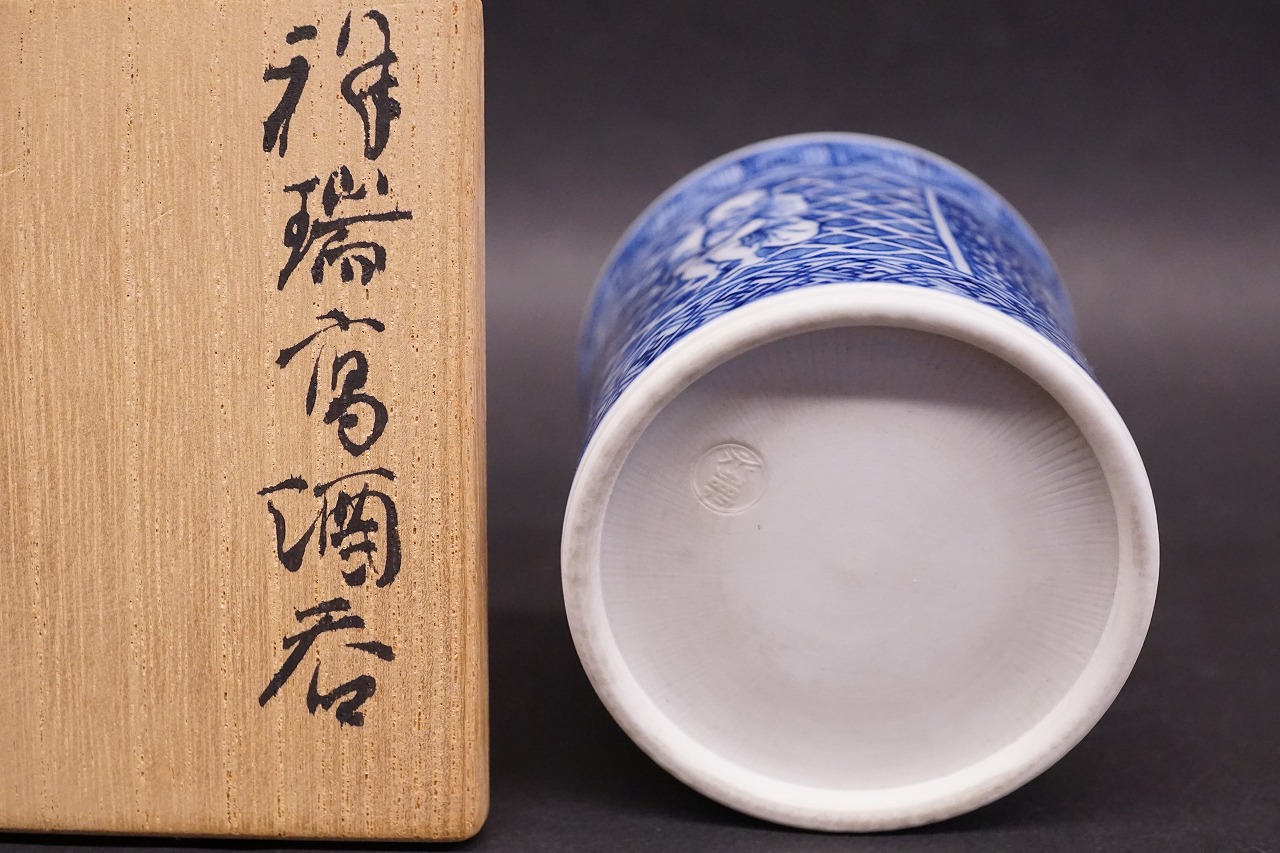 祥瑞高酒呑